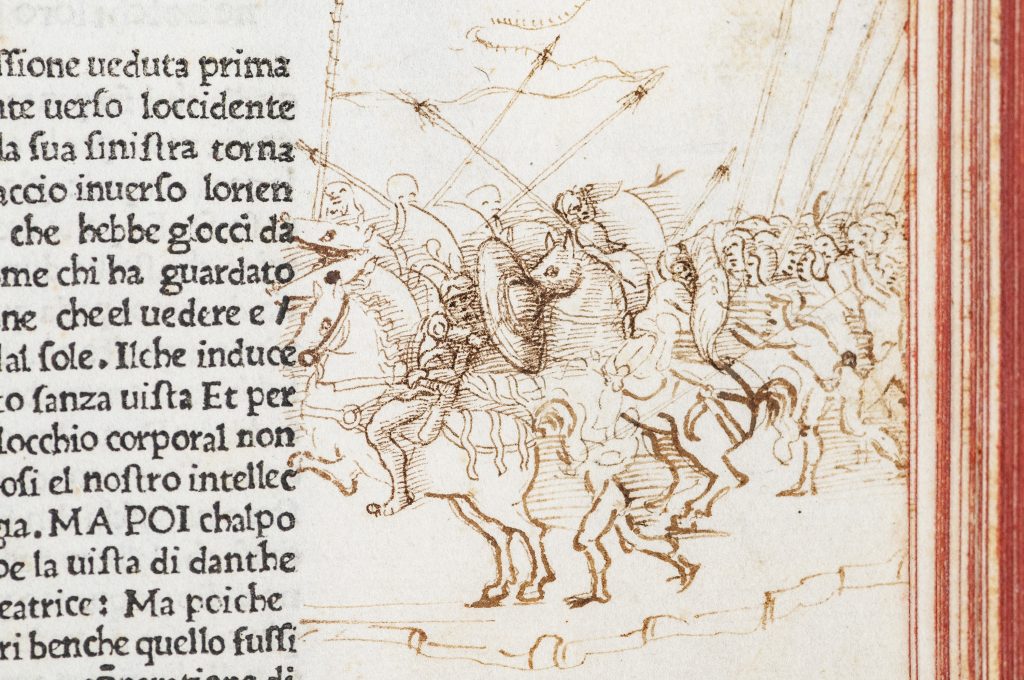 ſſione ueduta prima
nte uerſo loccidente
la ſua ſiniſtra torna
accio inuerſo lorien
che hebbe glocci da
me chi ha guardato
ne che el uedere e
dal ſole. Ilche induce
to ſanza uiſta Et per
locchio corporal non
oſi el noſtro intellec
gia. MA POI chalpo
be la uiſta di danthe
eatrice: Ma poiche
ri benche quello fuſſi